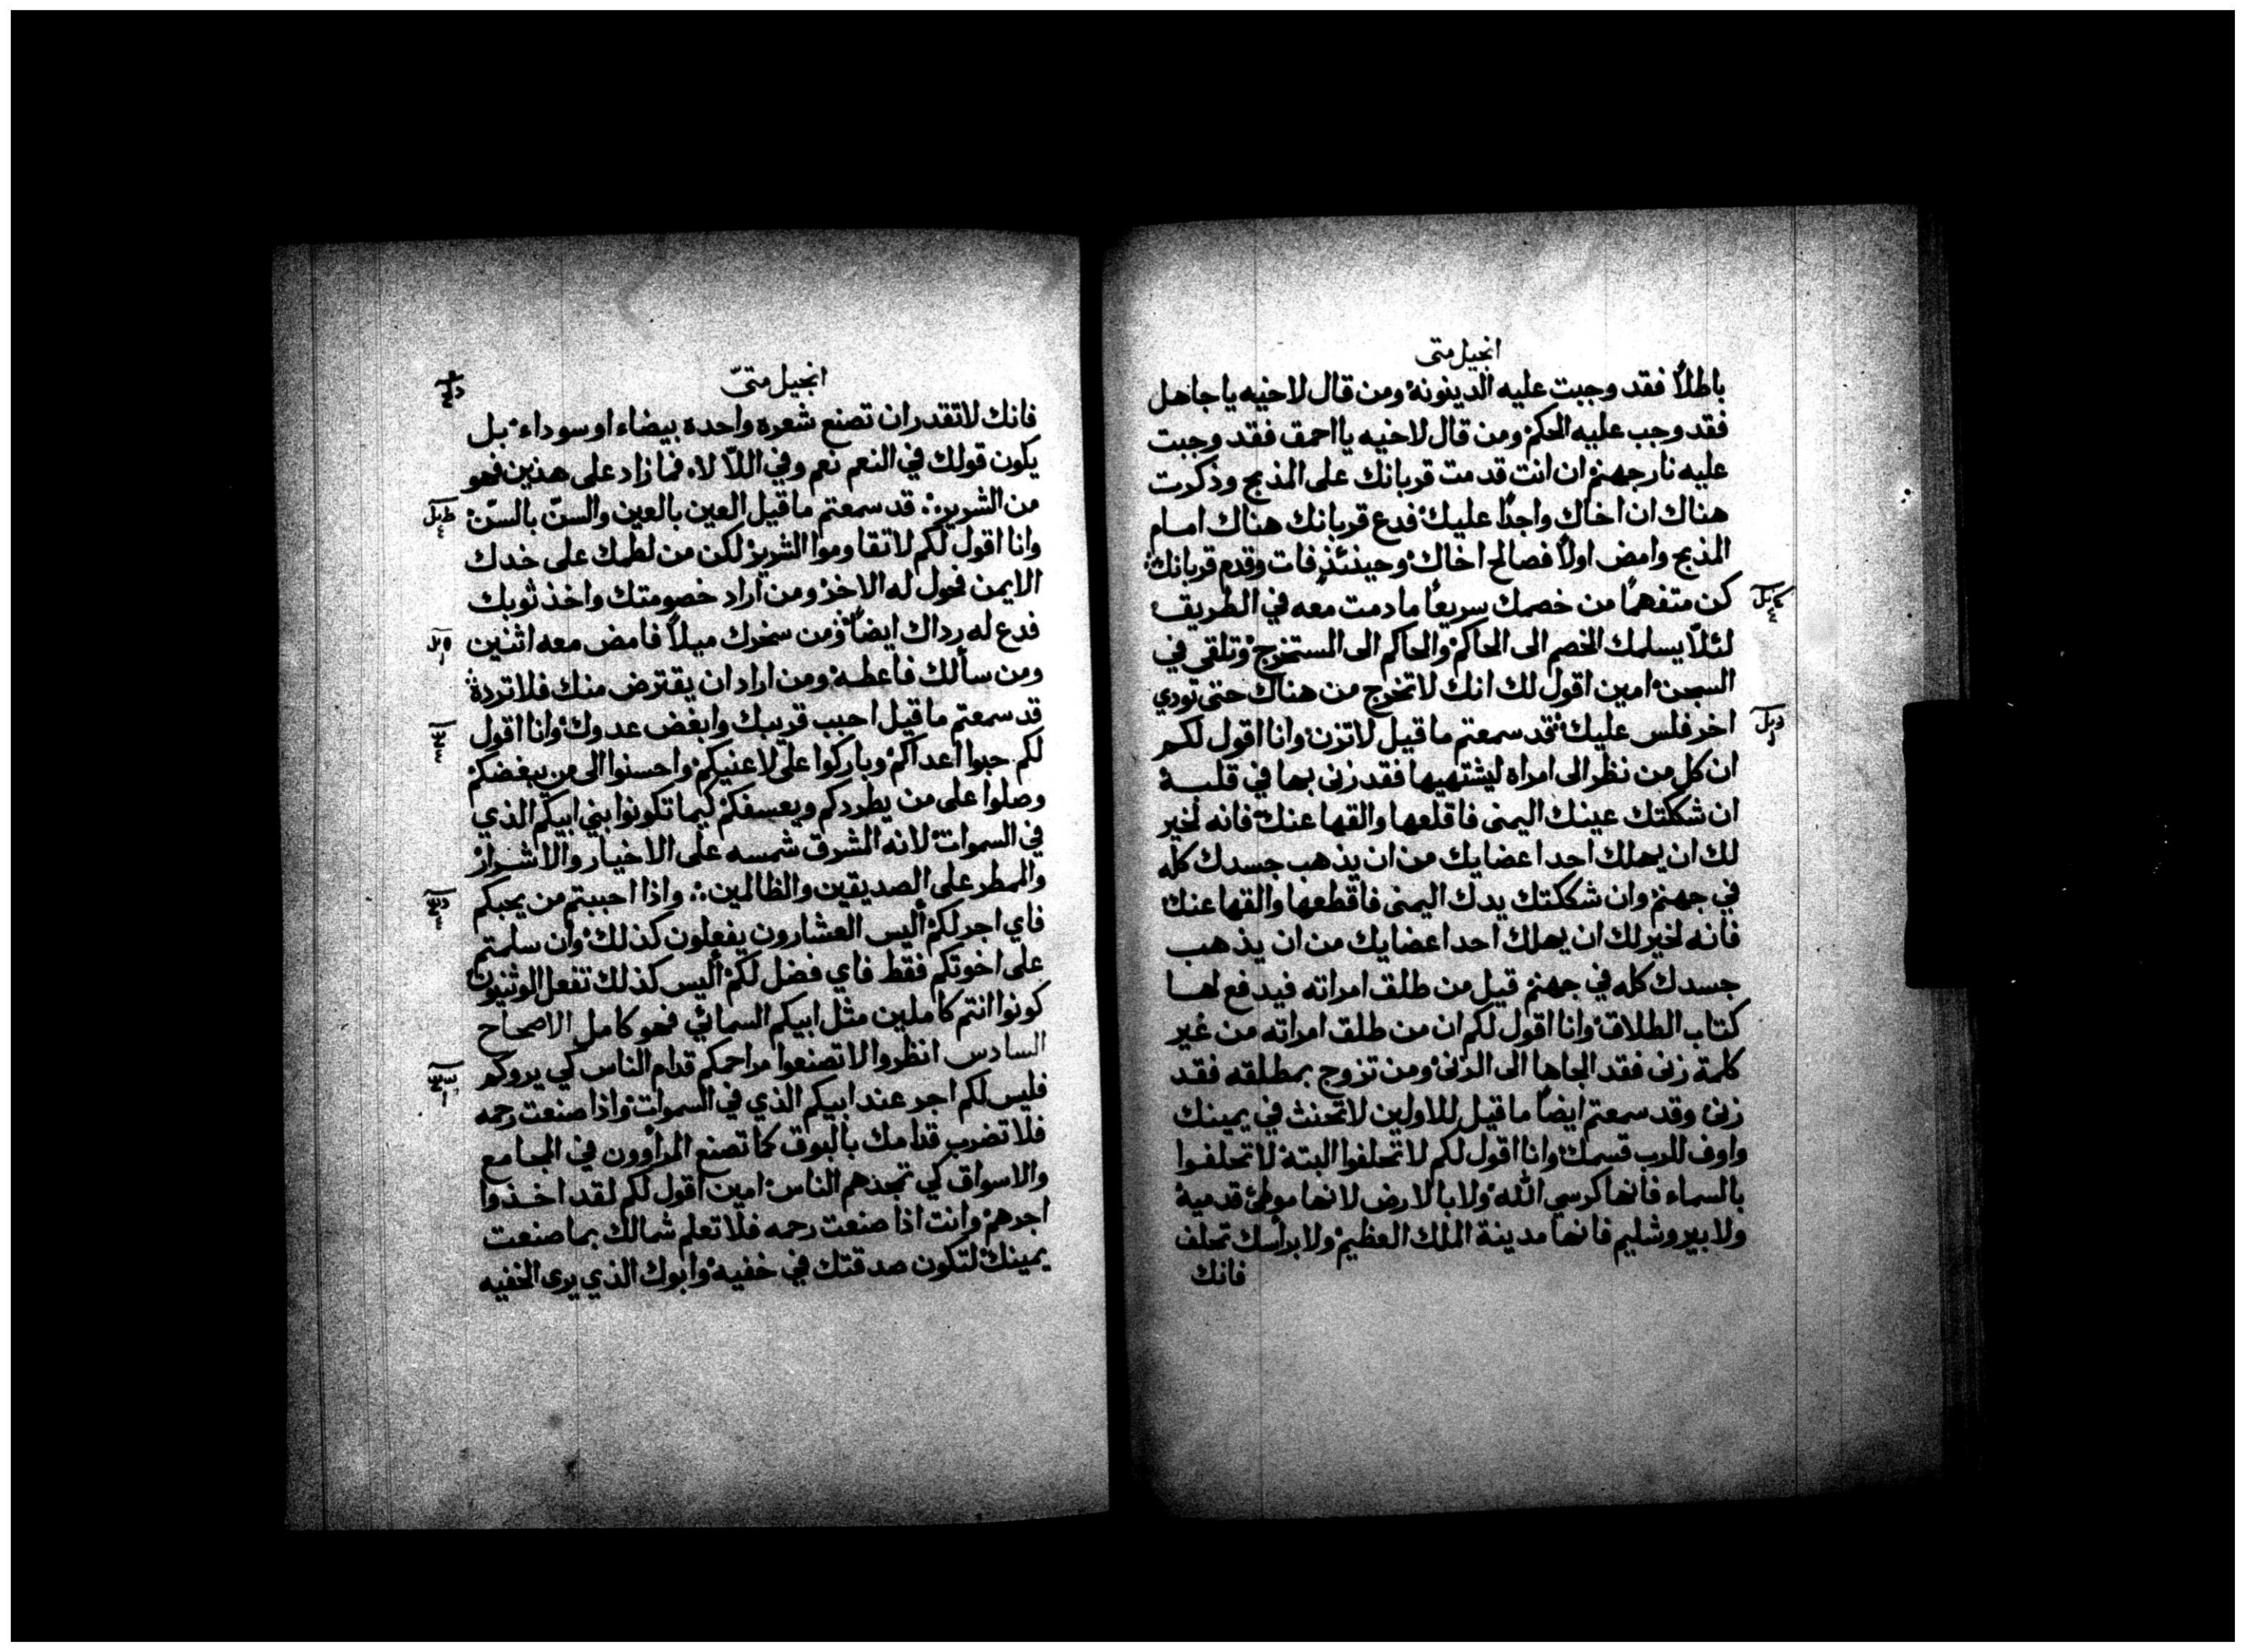 انجيل متى
باطلاً فقد وجبت عليه الدينونه ومن قال لاخيه يا جاهل
فقد وجب عليه الحكم ومن قال لاخيه يا احمق فقد وجبت
عليه نار جهنم ان انت قدمت قربانك على المذبح وذكرت
هناك ان اخاك واجدًا عليك فدع قربانك هناك امام
المذبح وامض اولاً فصالح اخاك وحينئذٍ فات وقدم قربانك
كن متفهمًا من خصمك سريعًا ما دمت معه في الطريق
لئلّا يسلمك الخصم الى الحاكم والحاكم الى المستخرج وتلقى في
السجن امين اقول لك انك لا تخرج من هناك حتى تودي
اخر فلس عليك قد سمعتم ما قيل لا تزن وانا اقول لكم
ان كل من نظر الى امراه ليشتهيها فقد زنى بها في قلبه
ان شككتك عينك اليمنى فاقلعها والقها عنك فانه لخير
لك ان يهلك احد اعضايك من ان يذهب جسدك كله
في جهنم وان شككتك يدك اليمنى فاقطعها والقها عنك
فانه لخير لك ان يهلك احد اعضايك من ان يذهب
جسدك كله في جهنم قيل من طلق امراته فيدفع لها
كتاب الطلاق وانا اقول لكم ان من طلق امراته من غير
كلمة زنى فقد الجاها الى الزنى ومن تزوج بمطلقه فقد
زنى وقد سمعتم ايضًا ما قيل للاولين لا تحنث في يمينك
واوف للرب قسمك وانا اقول لكم لا تحلفوا البتة لا تحلفوا
بالسماء فانها كرسي الله ولا بالارض لانها موطئ قدميه
ولا بيروشليم فانها مدينة الملك العظيم ولا براسك تحلف
فانك
انجيل متىّ
فانك لا تقدر ان تصنع شعره واحده بيضاء او سوداء بل
يكون قولك في النعم نعم وفي اللّا لاء فما زاد على هذين فهو
من الشرير قد سمعتم ما قيل العين بالعين والسنّ بالسنّ
وانا اقول لكم لا تقاوموا الشرير لكن من لطمك على خدك
الايمن فحول له الاخر ومن اراد خصومتك واخذ ثوبك
فدع له رداك ايضًا ومن سخرك ميلاً فامض معه اثنين
ومن سألك فاعطه ومن اراد ان يقترض منك فلا ترده
قد سمعتم ما قيل احبب قريبك وابغض عدوك وانا اقول
لكم حبوا اعداكم وباركوا على لاعنيكم واحسنوا الى من يبغضكم
وصلوا على من يطردكم ويعسفكم كيما تكونوا بني ابيكم الذي
في السموات لانه الشرق شمسه على الاخيار والاشرار
والمطر على الصديقين والظالمين واذا احببتم من يحبكم
فاي اجر لكم أليس العشارون يفعلون كذلك وان سلمتم
على اخوتكم فقط فاي فضل لكم أليس كذلك تفعل الوثنيون
كونوا انتم كاملين مثل ابيكم السمائي فهو كامل الاصحاح
السادس انظروا لا تصنعوا مراحمكم قدام الناس كي يروكم
فليس لكم اجر عند ابيكم الذي في السموات واذا صنعت رحمه
فلا تضرب قدامك بالبوق كما تصنع المراوون في المجامع
والاسواق كي تمجدهم الناس امين اقول لكم لقد اخذوا
اجرهم وانت اذا صنعت رحمه فلا تعلم شمالك بما صنعت
يمينك لتكون صدقتك في خفيه وابوك الذي يرى الخفيه